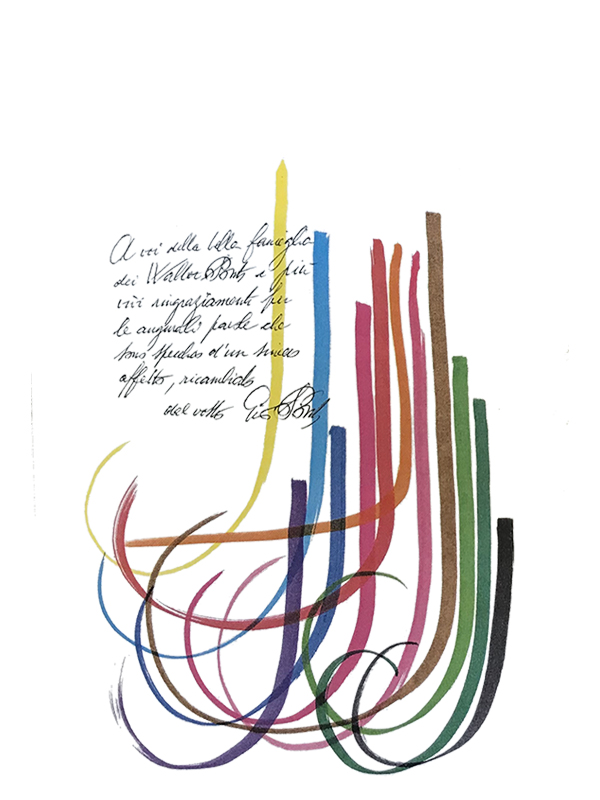 A voi della bella famiglia
dei Walter Ponti i più
vivi ringraziamenti per
le augurali parole che
sono specchio d'un
affetto, ricambiato
del vostro Gio Ponti